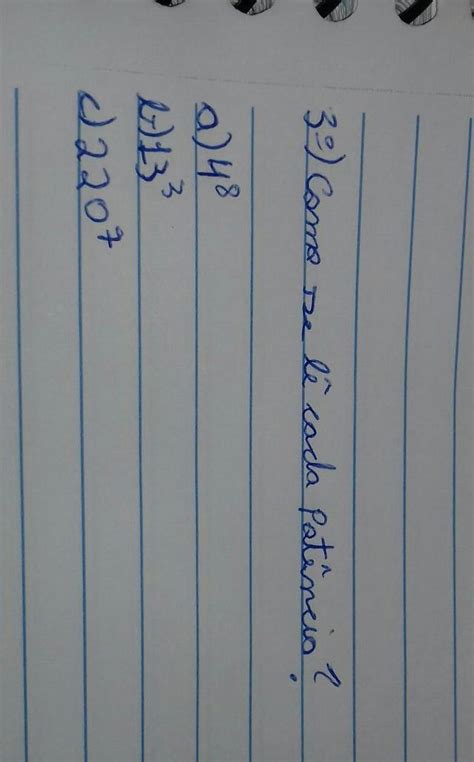 3º) Como se lê cada potência?
a) 4⁸
b) 13³
c) 220⁷